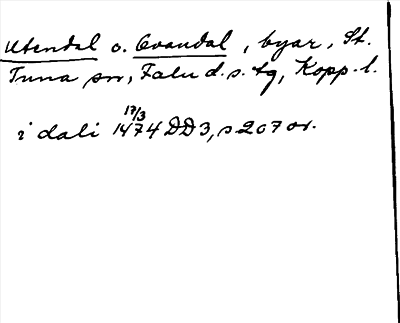 Utendal o. Ovandal, byar, St.
Tuna sn, Falu d. s. tg, Kopp. l.
17/3
i dali 1474 DD3, s 207 or.